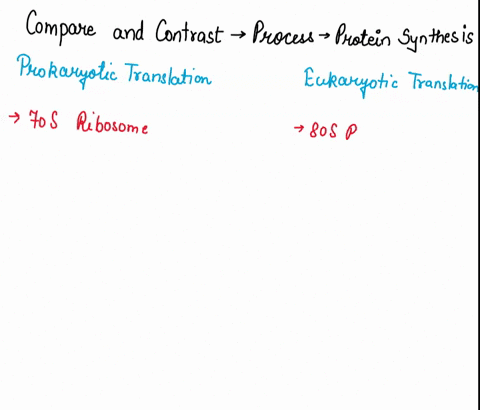 Compare and Contrast → Process → Protein Synthesis
Prokaryotic Translation
Eukaryotic Translation
→ 70S Ribosome
→ 80S P